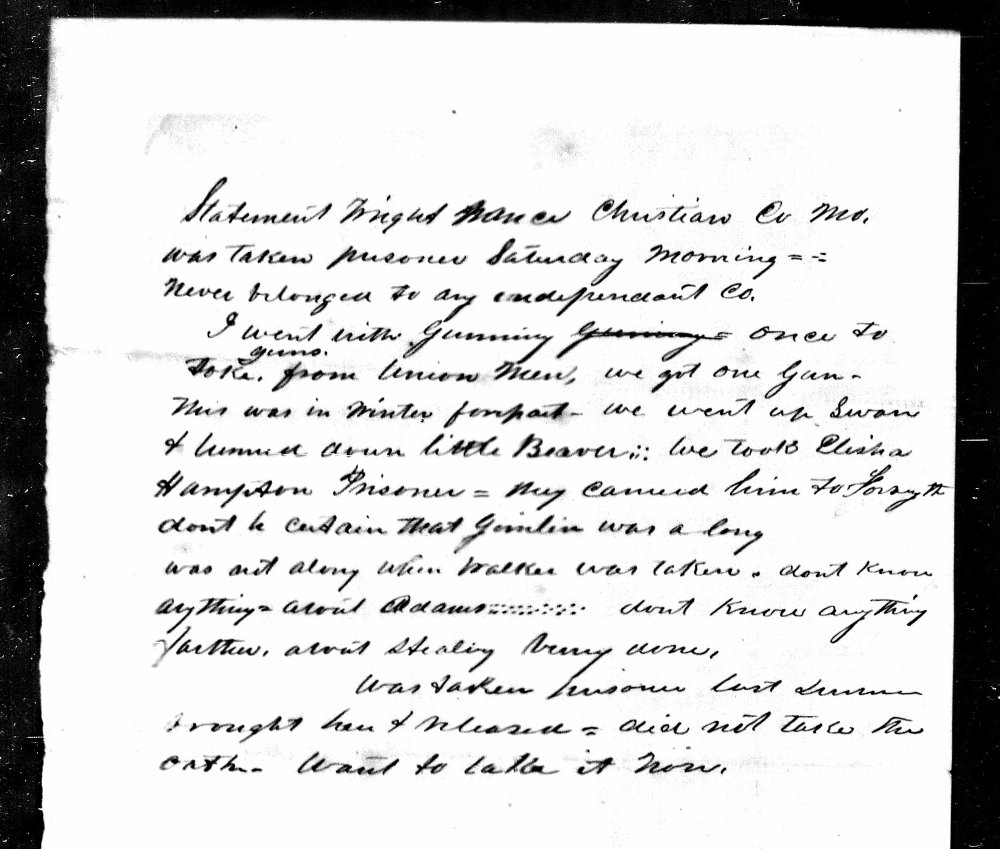 Statement Wright Nance Christian Co Mo.
was taken prisoner Saturday Morning = =
Never belonged to any independant Co.
I went with Gunning Guning = once to
guns.
take. from Union Men, we got one Gun -
This was in Winter forepart - we went up Swan
& turned down little Beaver :: We took Elisha
Hampton Prisoner = they carried him to Forsyth
dont be certain that Gimlin was a long
was not along when Walker was taken. dont know
anything = about Adams ........ dont know anything
farther. about stealing being done.
Was taken prisoner last Summer
brought here & released = did not take the
oath - Want to take it Now.